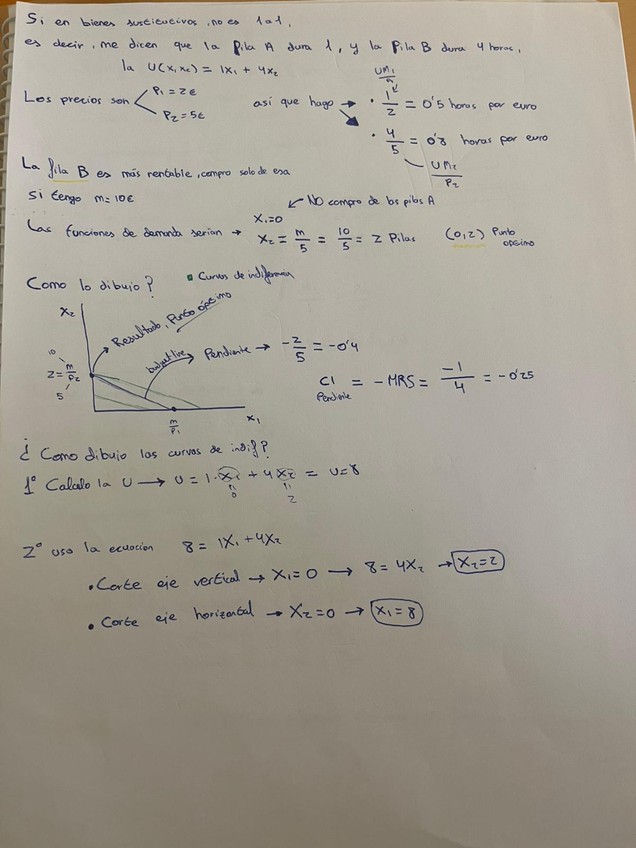 Si en bienes sustitutivos, no es 1 a 1,
es decir, me dicen que la Pila A dura 1, y la Pila B dura 4 horas,
la U(x₁x₂) = 1x₁ + 4x₂
Los precios son P₁ = 2€
P₂ = 5€
así que hago → • 1/2 = 0'5 horas por euro
UM₁
• 4/5 = 0'8 horas por euro
UM₂/P₂
La Pila B es más rentable, compro solo de esa
Si tengo m = 10€
NO compro de las pilas A
Las funciones de demanda serian → x₁=0
x₂ = m/5 = 10/5 = 2 Pilas (0,2) Punto optimo
Como lo dibujo? • Curvas de indiferencia
x₂
Resultado, Punto óptimo
budget line
Pendiente → -2/5 = -0'4
10
2 = m/P₂
5
x₁
m/P₁
CI Pendiente = -MRS = -1/4 = -0'25
¿Como dibujo las curvas de indif?
1º Calculo la U → U = 1·x₁ + 4x₂ = U=8
0 2
2º uso la ecuacion 8 = 1x₁ + 4x₂
• Corte eje vertical → x₁=0 → 8 = 4x₂ → x₂=2
• Corte eje horizontal → x₂=0 → x₁=8